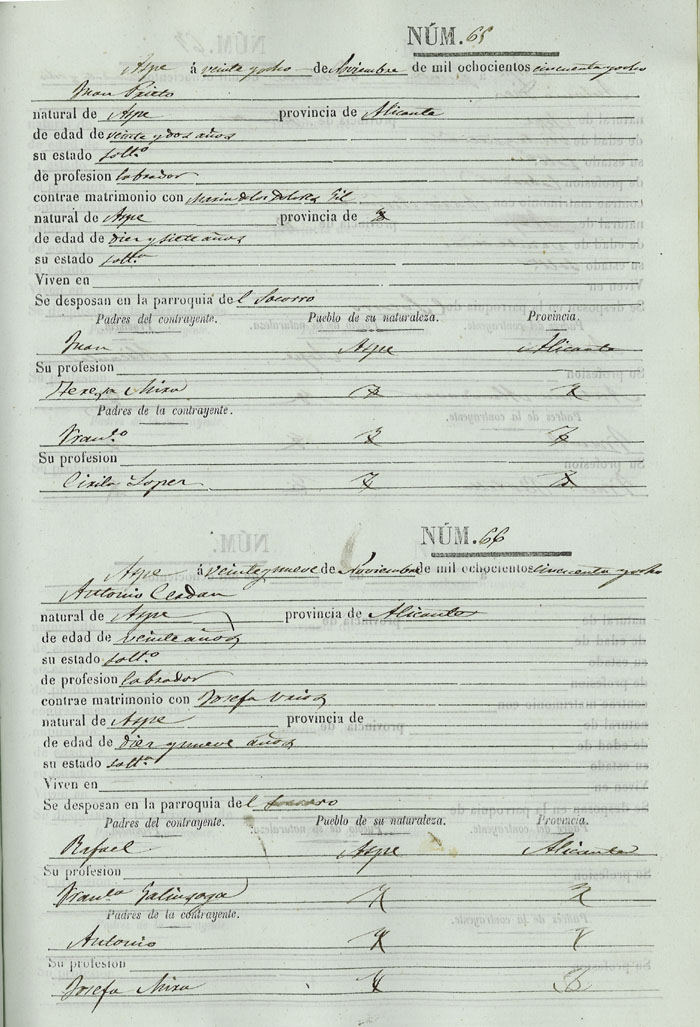 NÚM. 65
Aspe á veinte y ocho de Noviembre de mil ochocientos cincuenta y ocho
Juan Prieto
natural de Aspe provincia de Alicante
de edad de veinte y dos años
su estado solt.o
de profesion labrador
contrae matrimonio con Maria de los Dolores Gil
natural de Aspe provincia de
de edad de diez y siete años
su estado solt.a
Viven en
Se desposan en la parroquia de l Socorro
Padres del contrayente. Pueblo de su naturaleza. Provincia.
Juan Aspe Alicante
Su profesion
Tereza Mira
Padres de la contrayente.
Fran.co
Su profesion
Cirila Lopez
NÚM. 66
Aspe á veinte y nueve de Noviembre de mil ochocientos cincuenta y ocho
Antonio Cerdan
natural de Aspe provincia de Alicante
de edad de veinte años
su estado solt.o
de profesion labrador
contrae matrimonio con Josefa
natural de Aspe provincia de
de edad de diez y nueve años
su estado solt.a
Viven en
Se desposan en la parroquia de l Socorro
Padres del contrayente. Pueblo de su naturaleza. Provincia.
Rafael Aspe Alicante
Su profesion
Fran.ca Galinzoga
Padres de la contrayente.
Antonio
Su profesion
Josefa Mira